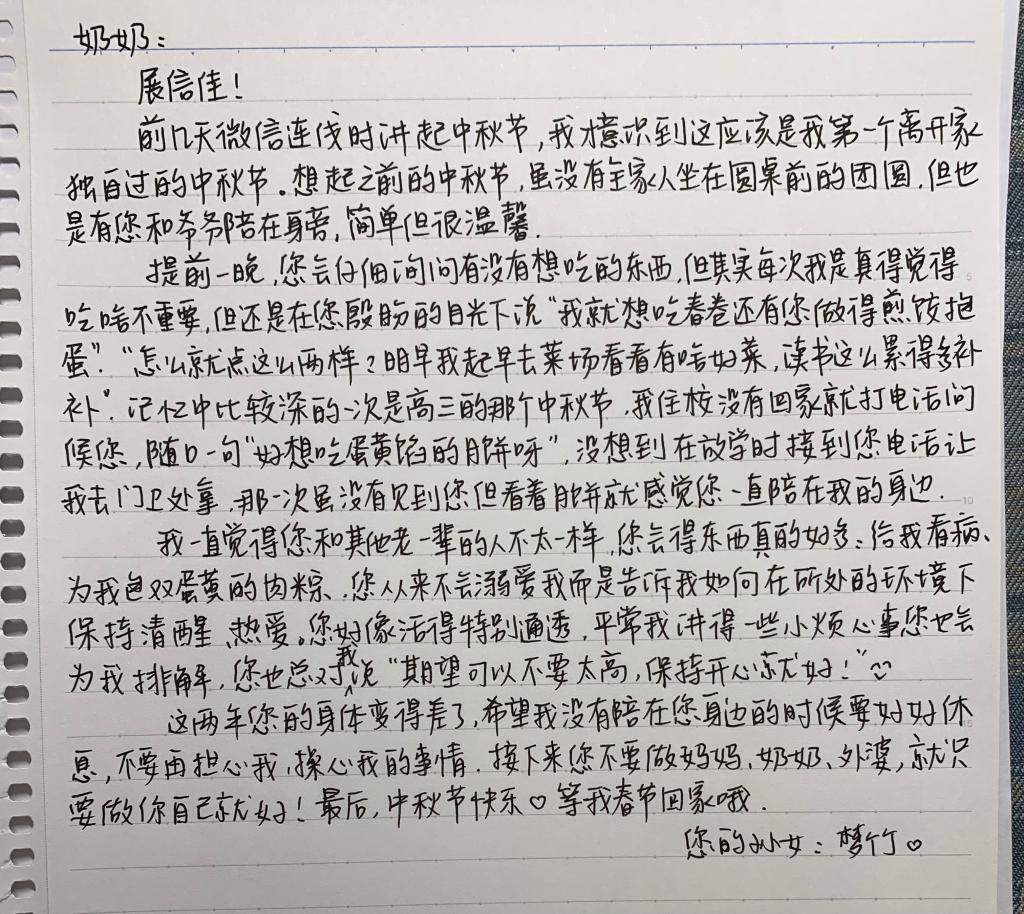 奶奶：
展信佳！
前几天微信连线时讲起中秋节，我才意识到这应该是我第一个离开家
独自过的中秋节。想起之前的中秋节，虽没有全家人坐在圆桌前的团圆，但也
是有您和爷爷陪在身旁，简单但很温馨.
提前一晚，您会仔细询问有没有想吃的东西，但其实每次我是真得觉得
吃啥不重要，但还是在您殷盼的目光下说“我就想吃春卷还有您做得煎饺抱
蛋”.“怎么就点这么两样？明早我起早去菜场看看有啥好菜，读书这么累得多补
补”. 记忆中比较深的一次是高三的那个中秋节，我住校没有回家就打电话问
候您，随口一句“好想吃蛋黄馅的月饼呀”，没想到在放学时接到您电话让
我去门卫处拿，那一次虽没有见到您但看着月饼就感觉您一直陪在我的身边.
我一直觉得您和其他老一辈的人不太一样，您会得东西真的好多：给我看病、
为我包双蛋黄的肉粽、您从来不会溺爱我而是告诉我如何在所处的环境下
保持清醒、热爱。您好像活得特别通透，平常我讲得一些小烦心事您也会
为我排解，您也总对我说“期望可以不要太高，保持开心就好！”
这两年您的身体变得差了，希望我没有陪在您身边的时候要好好休
息，不要再担心我，操心我的事情. 接下来您不要做妈妈、奶奶、外婆，就只
要做你自己就好！最后，中秋节快乐♡等我春节回家哦.
您的孙女：梦竹♡